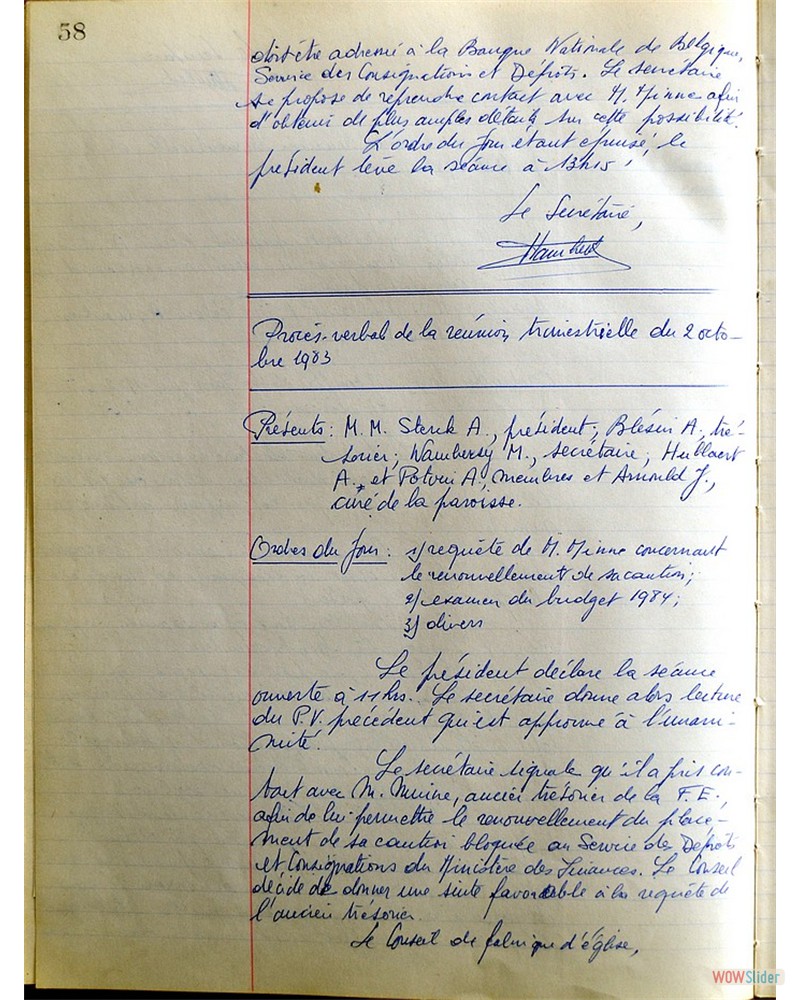 58
doit être adressé à la Banque Nationale de Belgique,
Service des Consignations et Dépôts. Le secrétaire
se propose de reprendre contact avec M. Minne afin
d'obtenir de plus amples détails sur cette possibilité.
L'ordre du Jour étant épuisé, le
président lève la séance à 13h15.
Le Secrétaire,
Procès-verbal de la réunion trimestrielle du 2 octo-
bre 1983
Présents : M.M. Sterck A., président; Blésin A., tré-
sorier; Wambersy M., secrétaire; Hullaert
A., et Potvin A., membres et Arnould J.,
curé de la paroisse.
Ordres du Jour : 1) requête de M. Minne concernant
le renouvellement de sa caution;
2) examen du budget 1984;
3) divers
Le président déclare la séance
ouverte à 11 hrs. Le secrétaire donne alors lecture
du P.V. précédent qui est approuvé à l'unani-
mité.
Le secrétaire signale qu'il a pris con-
tact avec M. Minne, ancien trésorier de la F.E.,
afin de lui permettre le renouvellement du place-
ment de sa caution bloquée au Service des Dépôts
et Consignations du Ministère des Finances. Le Conseil
décide de donner une suite favorable à la requête de
l'ancien trésorier.
Le Conseil de fabrique d'église,
WOWSlider